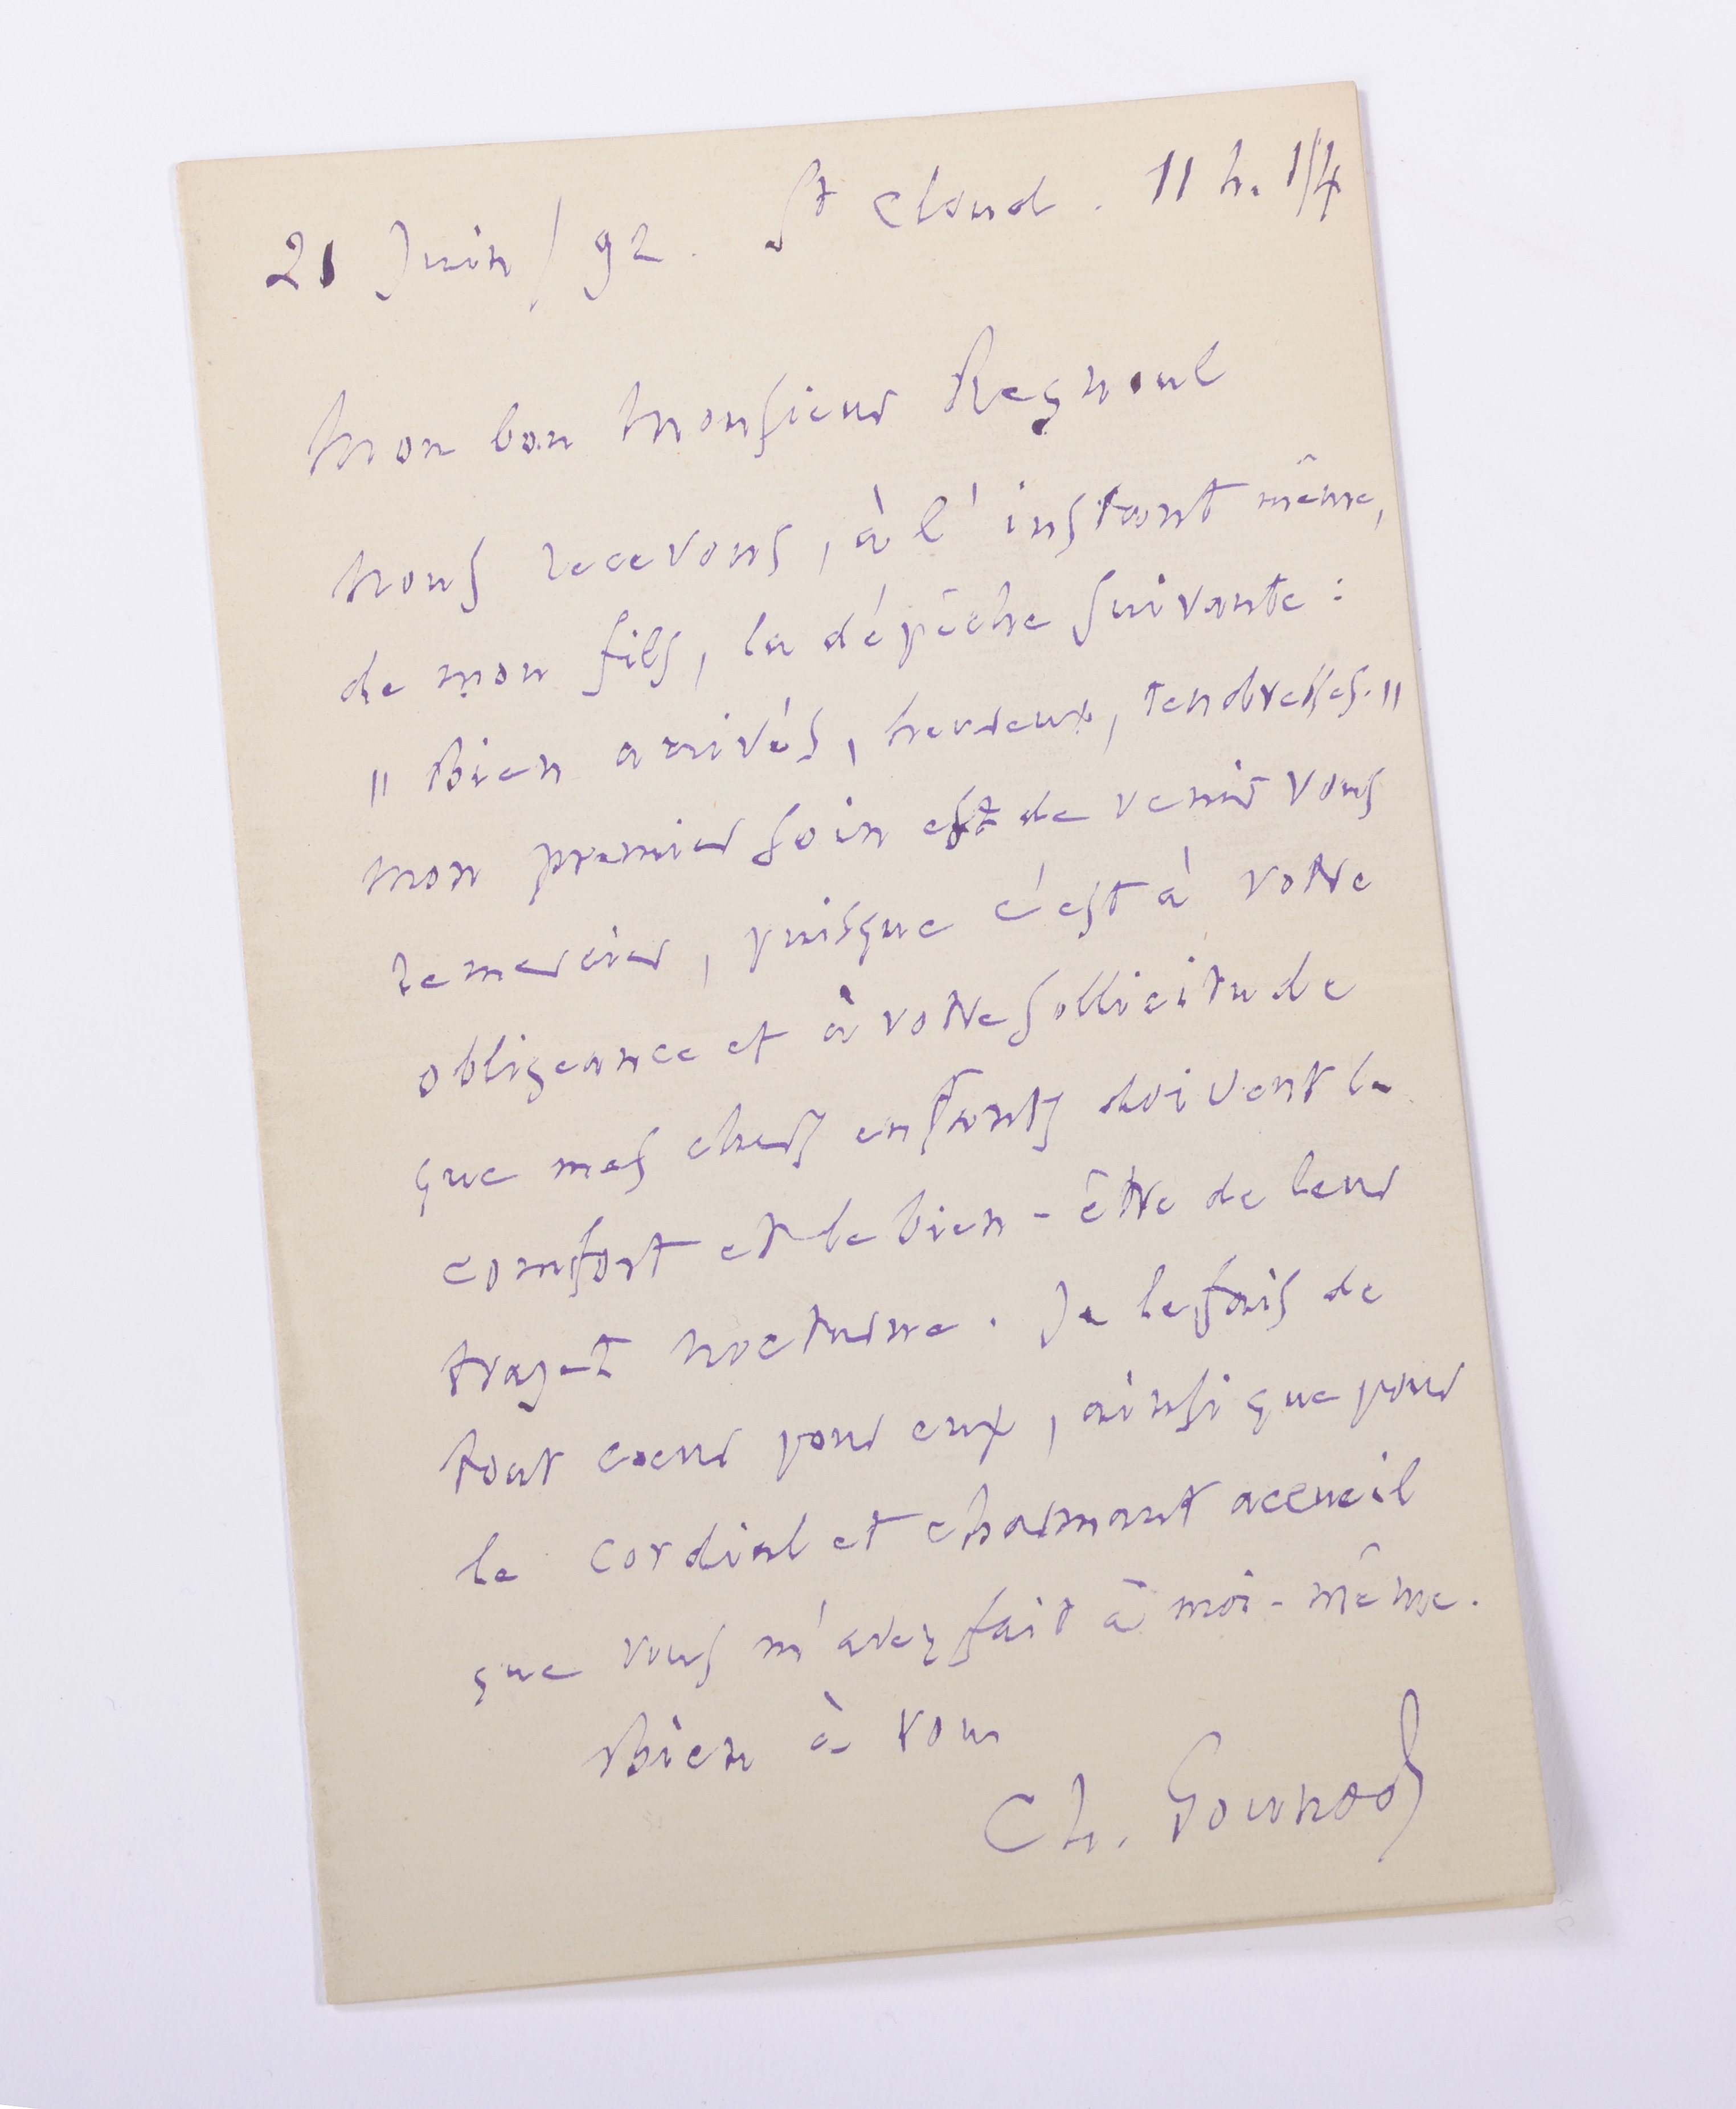 21 Juin / 92. St Cloud. 11 h. 1/4
Mon bon Monsieur Regnoul
Nous recevons, à l'instant même,
de mon fils, la dépêche suivante :
"Bien arrivés, heureux, tendresses."
Mon premier soin est de venir vous
remercier, puisque c'est à votre
obligeance et à votre sollicitude
que mes chers enfants doivent le
comfort et le bien-être de leur
trajet nocturne. Je le fais de
tout coeur pour eux, ainsi que pour
le cordial et charmant accueil
que vous m'avez fait à moi-même.
Bien à vous
Ch. Gounod